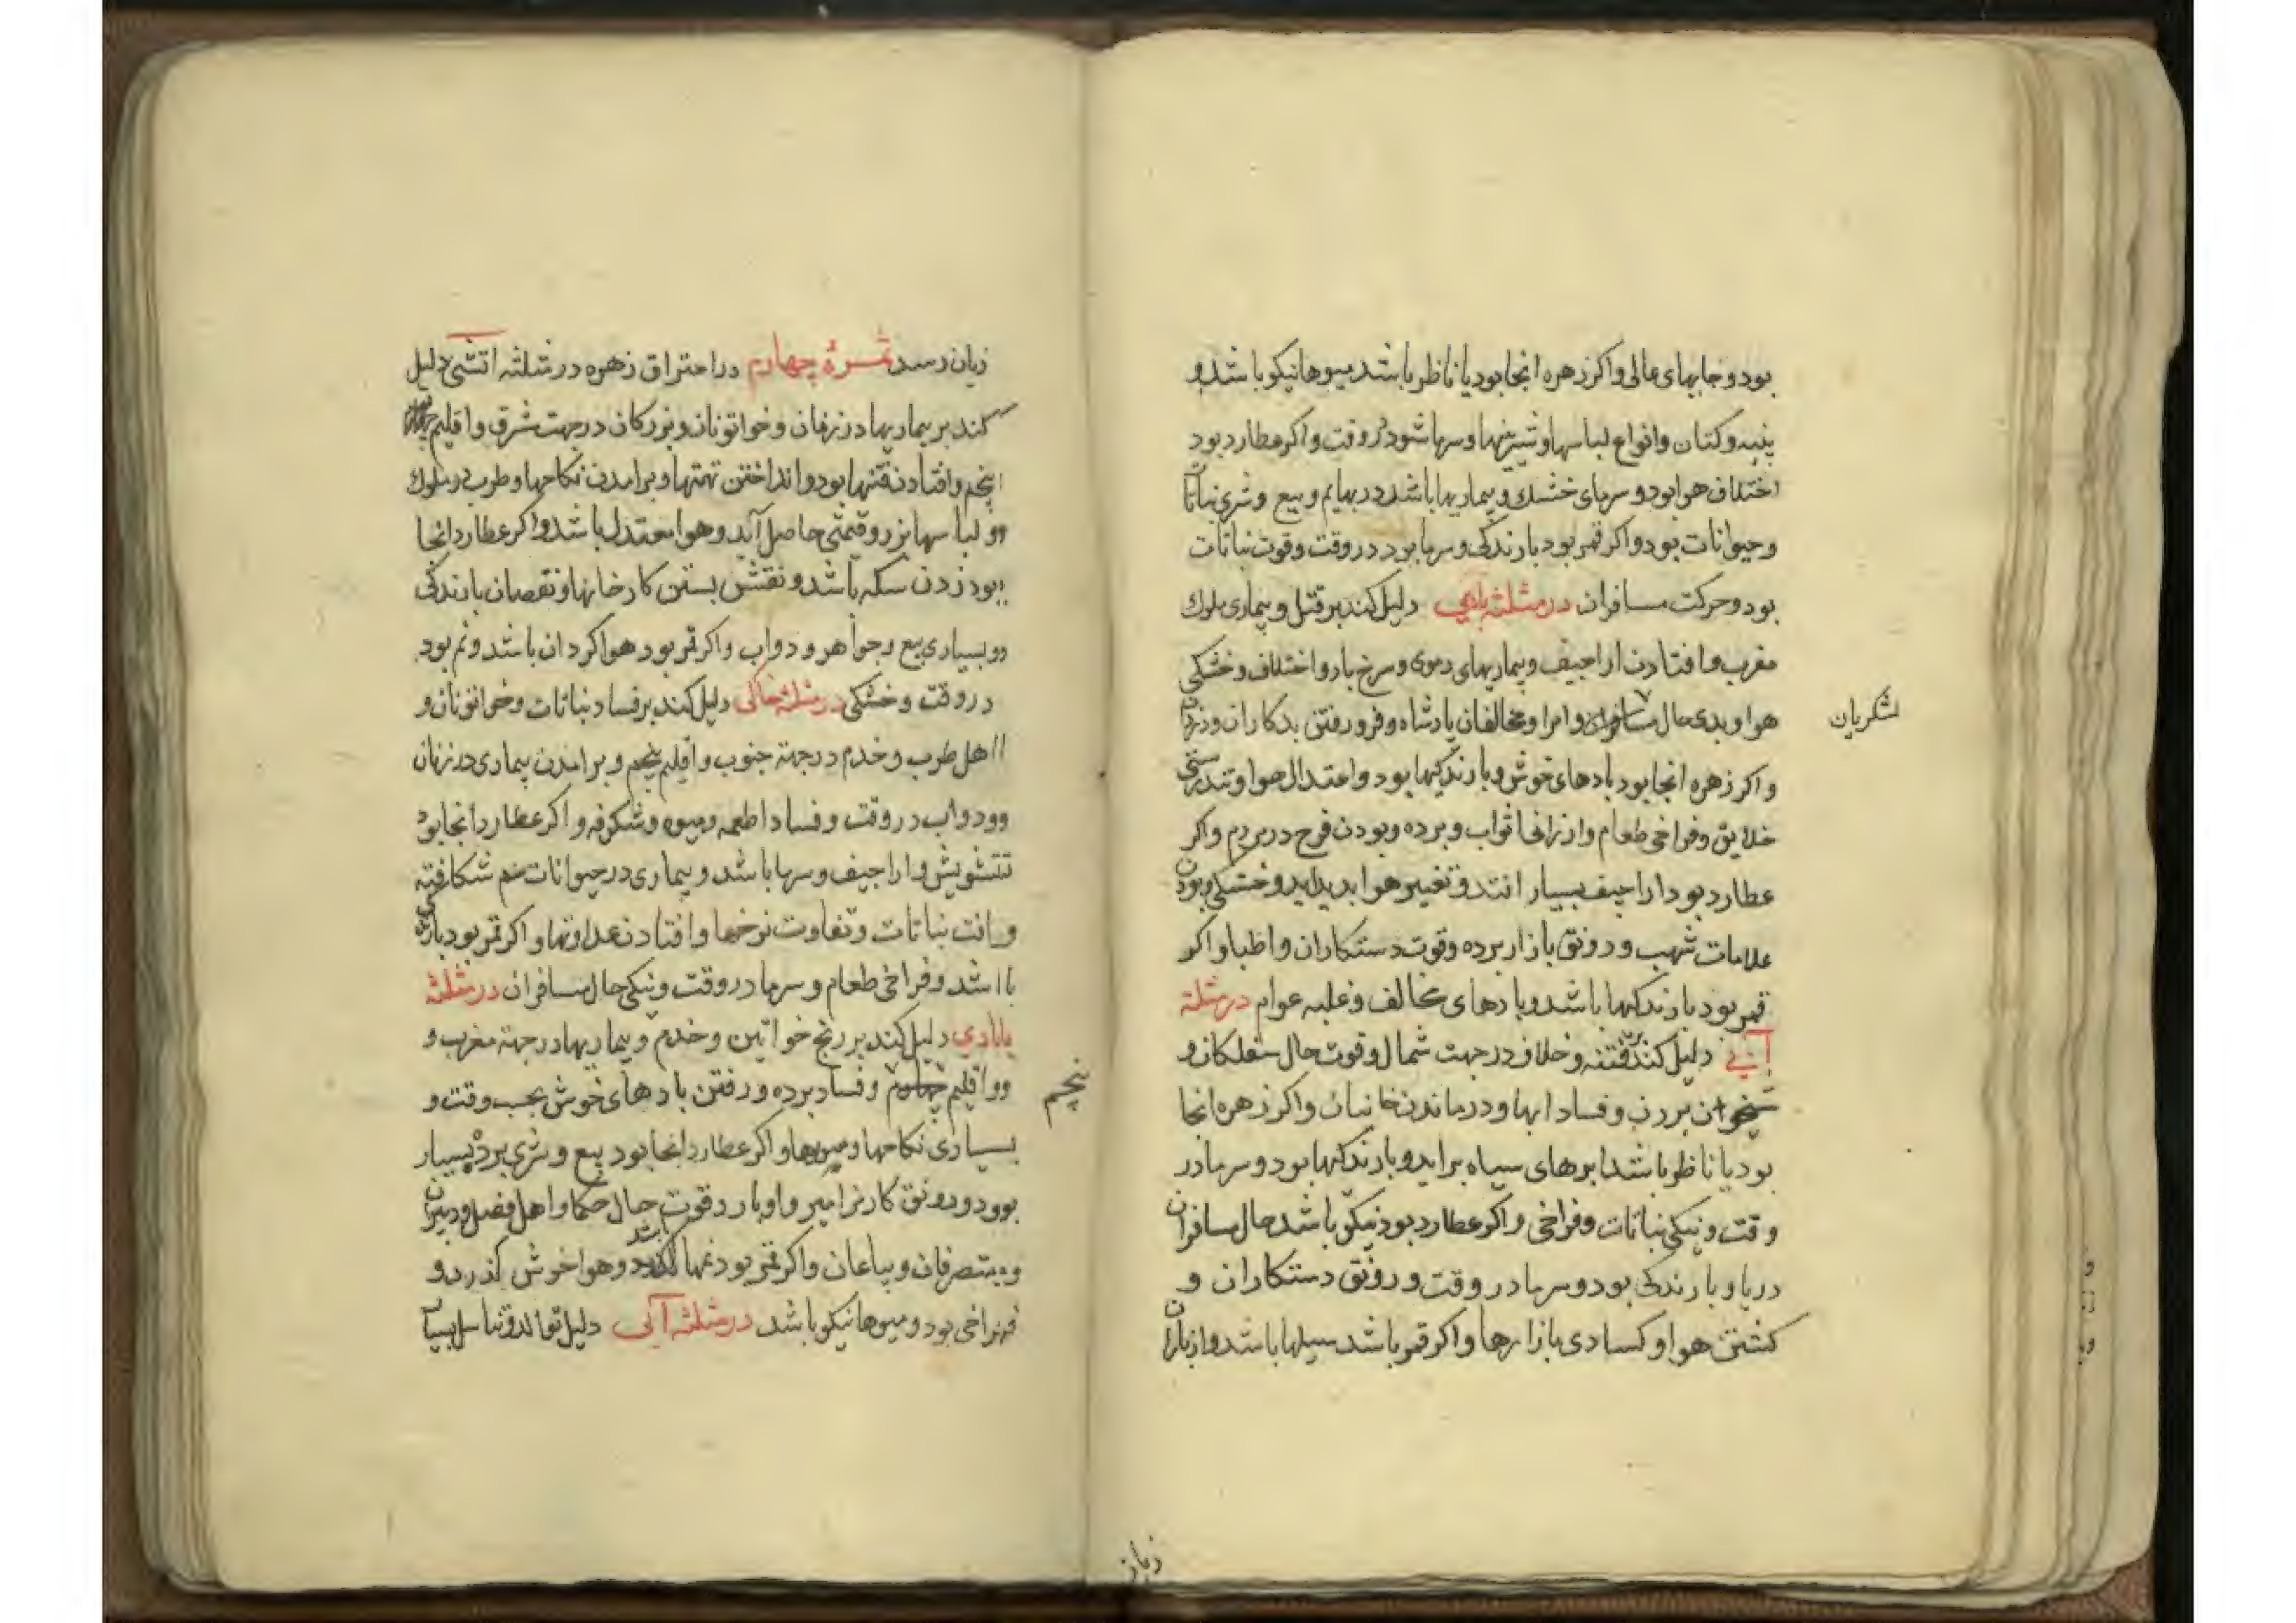 بود و جایهای عالی و اکر زهره انجا بود یا ناظر باشد میوها نیکو باشد و
پنبه و کتان و انواع لباسها و شیرینیها و سرما شود در وقت و اکر عطارد بود
اختلاف هوا بود و سرمای خشك و بیماریها باشد در بهایم و بیع و شری نباتا
و حیوانات بود و اکر قمر بود بارندکی و سرما بود در وقت و قوت نباتات
بود و حرکت مسافران در مثلثه بادی دلیل کند بر قتل و بیماری ملوك
مغرب و افتادن اراجیف و بیماریهای دموی و سرخ باد و اختلاف و خشکی
هوا و بدی حال مسافران و امرا و مخالفان پادشاه و فرو رفتن بدکاران و دزدان
لشکریان
و اکر زهره انجا بود بادهای خوش و بارندکیها بود و اعتدال هوا و تندرستی
خلایق و فراخی طعام و ارزانی اثواب و برده و بودن فرح در مردم و اکر
عطارد بود اراجیف بسیار افتد و تغییر هوا بدید اید و خشکی و بودن
علامات شهب و رونق بازار برده و قوت دستکاران و اطبا و اکر
قمر بود بارندکیها باشد و بادهای مخالف و غلبه عوام در مثلثة
آبی دلیل کند بر فتنه و خلاف در جهت شمال و قوت حال سفلکان و
شبیخون بردن و فساد ابها و درماندن خانیان و اکر زهره انجا
بود یا ناظر باشد ابرهای سیاه براید و بارندکیها بود و سرما در
وقت و نیکی نباتات و فراخی و اکر عطارد بود نیکو باشد حال مسافران
دریا و بارندکی بود و سرما در وقت و رونق دستکاران و
کشتن هوا و کسادی بازارها و اکر قمر باشد سیلها باشد و از باران
زیان
زیان رسد ثمرۀ چهارم در احتراق زهره در مثلثه اتشی دلیل
کند بر بیماریها در زنان و خواتونان و بزرکان در جهت شرق و اقلیم
پنجم و افتادن فتنها بود و انداختن تهمتها و برامدن نکاحها و طرب در ملوك
و لباسها بزر و قیمتی حاصل آید و هوا معتدل باشد و اکر عطارد انجا
بود زدن سکه باشد و نقش بستن کارخانها و نقصان بارندکی
و بسیاری بیع و جواهر و دواب و اکر قمر بود هوا کردان باشد و نم بود
در وقت و خشکی در مثلثه خاکی دلیل کند بر فساد نباتات و خواتونان و
اهل طرب و خدم در جهة جنوب و اقلیم پنجم و برامدن بیماری در زنان
و دواب در وقت و فساد اطعمه و میوه و شکوفه و اکر عطارد انجا بود
تشویش و اراجیف و سرما باشد و بیماری در حیوانات سم شکافته
و افت نباتات و تفاوت نرخها و افتادن عداوتها و اکر قمر بود بارندکی
باشد و فراخی طعام و سرما در وقت و نیکی حال مسافران در مثلثه
بادی دلیل کند بر رنج خواتین و خدم و بیماریها در جهة مغرب و
و اقلیم چهارم و فساد برده و رفتن بادهای خوش بحسب وقت و
پنجم
بسیاری نکاحها و میوها و اکر عطارد انجا بود بیع و شری برده بسیار
بود و رونق کار مزامیر و اوتار و قوت حال حکما و اهل فضل و دبیران
و متصرفان و بیاعان و اکر قمر بود نمها باشد و هوا خوش کذرد و
فراخی بود و میوها نیکو باشد در مثلثه آبی دلیل توالد و تناسل بسیا